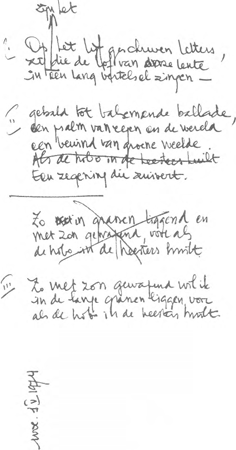 zijn het
I
Op het lijf geschreven letters,
zij die de lof van onze lente
in een lang vertelsel zingen —
II
gebald tot balsemende ballade,
een psalm van zegen en de wereld
een bewind van groene weelde.
Als de hobo in de heesters huilt
Een zegening die zuivert.
Zo in granen liggend en
met zon gewapend, voor als
de hobo in de heesters huilt.
III
Zo met zon gewapend wil ik
in de granen liggen voor
als de hobo in de heesters huilt.